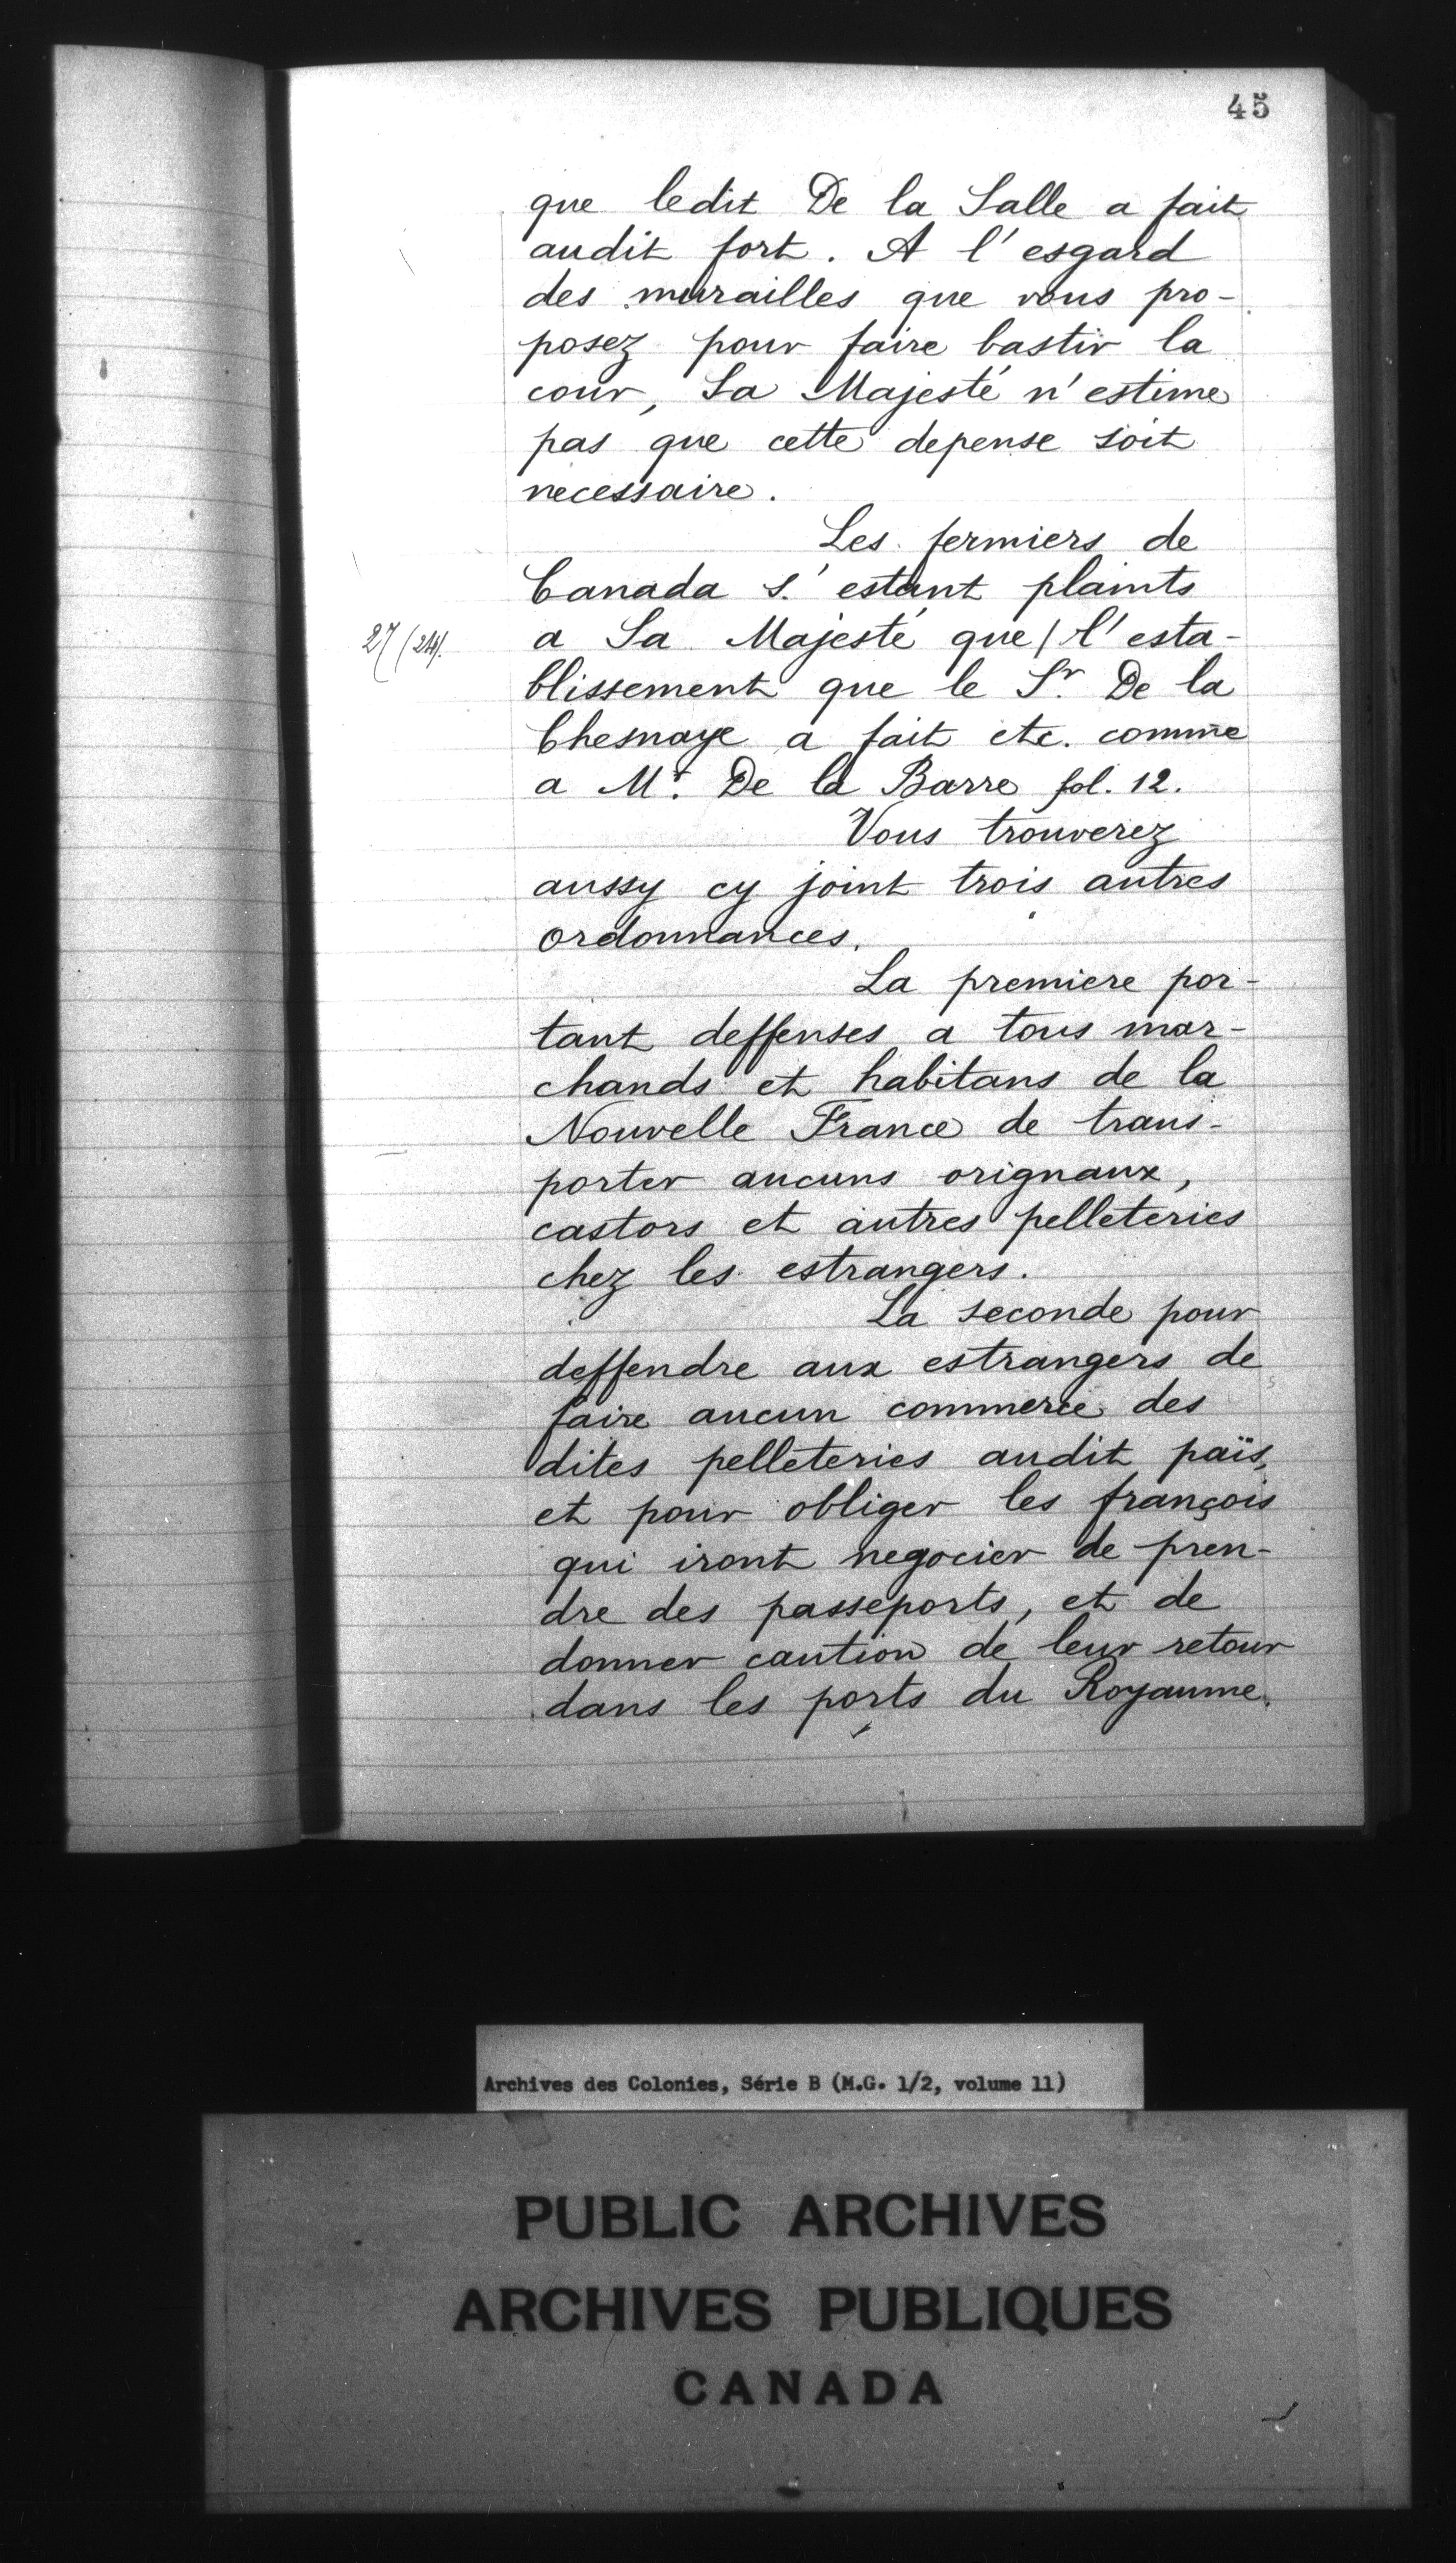 45
que ledit De la Salle a fait
audit fort. A l'esgard
des murailles que vous pro-
posez pour faire bastir la
cour, Sa Majesté n'estime
pas que cette depense soit
necessaire.
Les fermiers de
Canada s'estant plaints
a Sa Majesté que / l'esta-
blissement que le Sr. De la
Chesnaye a fait etc. comme
a Mr. De la Barre fol. 12.
Vous trouverez
aussy cy joint trois autres
ordonnances.
La premiere por-
tant deffenses a tous mar-
chands et habitans de la
Nouvelle France de trans-
porter aucuns orignaux,
castors et autres pelleteries
chez les estrangers.
La seconde pour
deffendre aux estrangers de
faire aucun commerce des
dites pelleteries audit païs,
et pour obliger les françois
qui iront negocier de pren-
dre des passeports, et de
donner caution de leur retour
dans les ports du Royaume.
Archives des Colonies, Série B (M.G. 1/2, volume 11)
PUBLIC ARCHIVES
ARCHIVES PUBLIQUES
CANADA